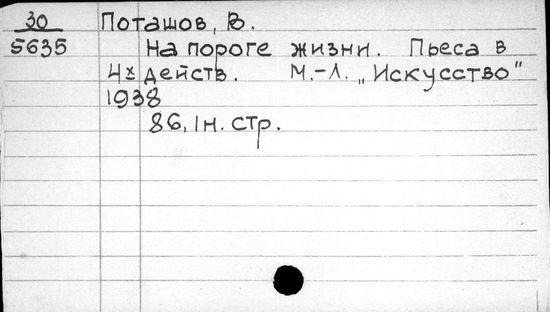 30 Поташов, В.
5635 На пороге жизни. Пьеса в
4х действ. М.-Л. „Искусство"
1938
86, 1н. стр.